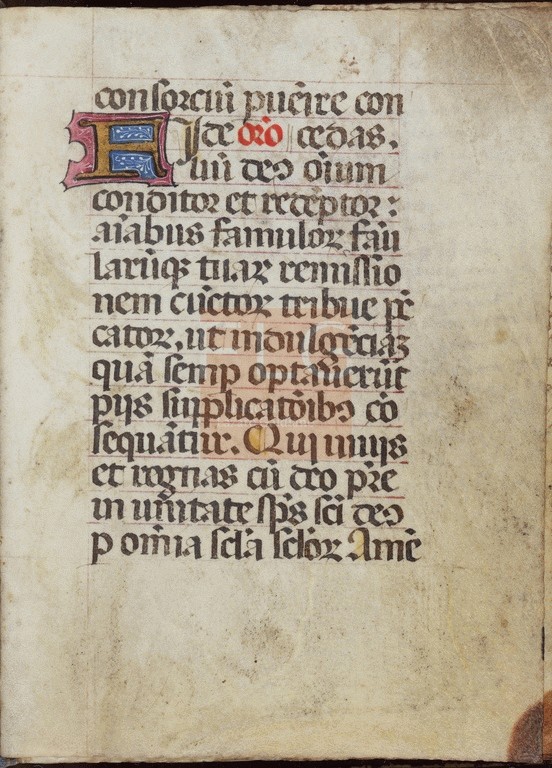 consorciū puēire con
Fide orō cedas.
liū deꝰ oīum
conditor et redēptor:
aīabus famulor fāu
larūqꝫ tuar remissio
nem cūctor tribue pē
cator, ut indulgēciāꝫ
quā semp optauerūt
piis supplicatōibꝰ cō
sequātur. Qui uiuis
et regnas cū deo pr̄e
in unitate sp̄s sc̄i deꝰ
p om̄ia sc̄la sc̄lor Amē